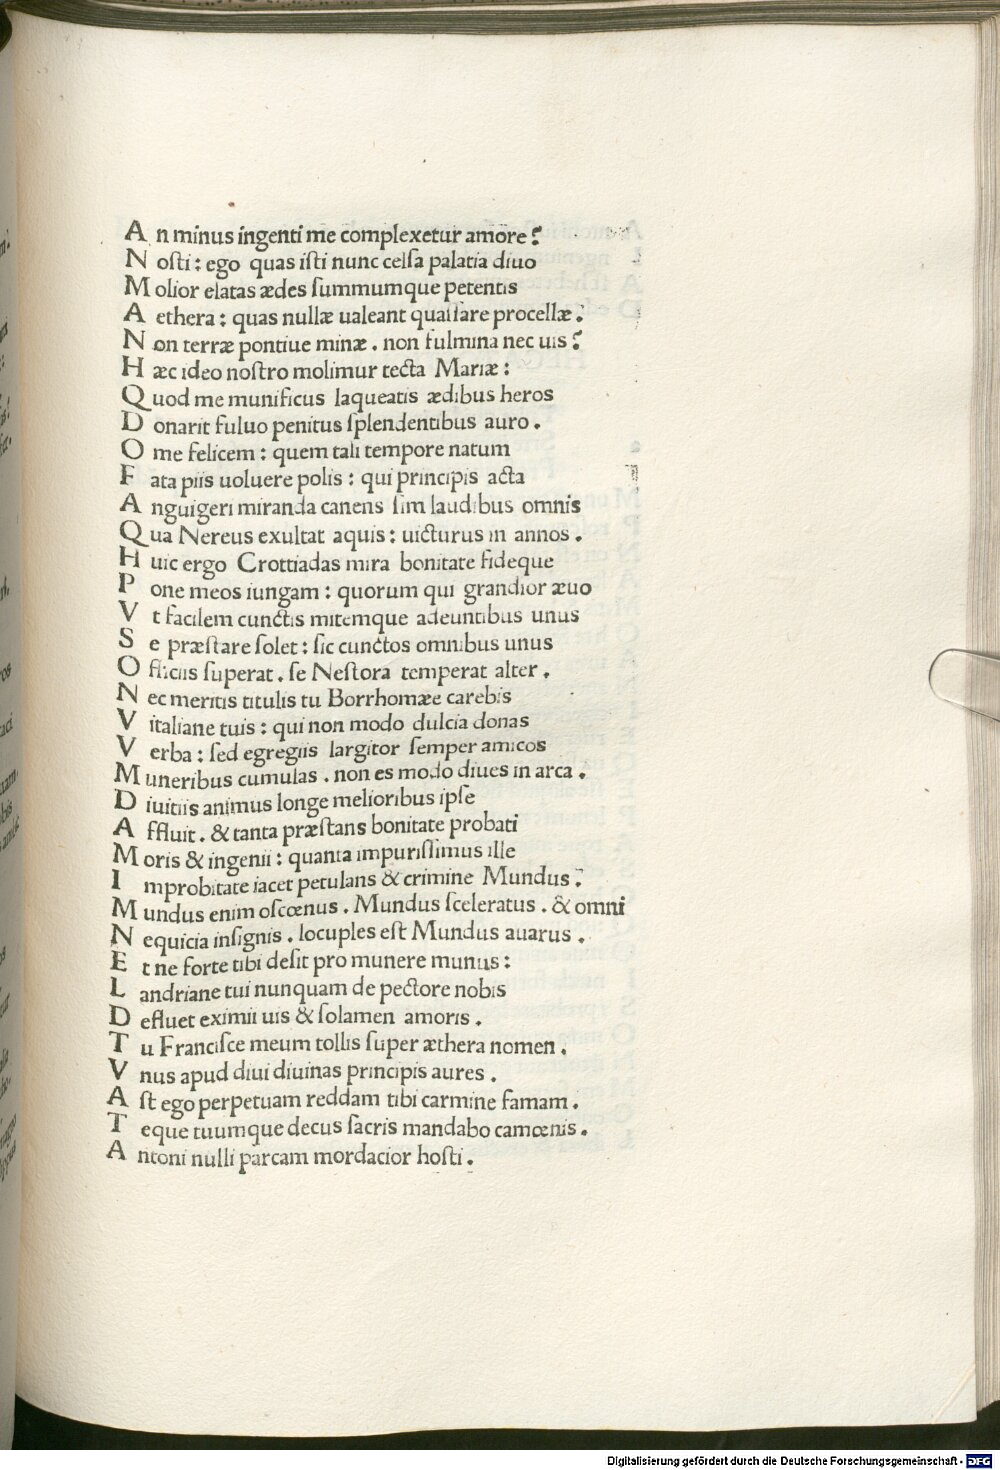 An minus ingenti me complexetur amore?
Nosti: ego quas isti nunc celſa palatia diuo
Molior elatas ædes ſummumque petentis
Aethera: quas nullæ ualeant quaſſare procellæ?
Non terræ pontiue minæ. non fulmina nec uis?
Hæc ideo noſtro molimur tecta Mariæ:
Quod me munificus laqueatis ædibus heros
Donarit fuluo penitus ſplendentibus auro.
O me felicem: quem tali tempore natum
Fata piis uoluere polis: qui principis acta
Anguigeri miranda canens ſim laudibus omnis
Qua Nereus exultat aquis: uicturus in annos.
Huic ergo Crottiadas mira bonitate fideque
Pone meos iungam: quorum qui grandior æuo
Vt facilem cunctis mitemque adeuntibus unus
Se præſtare ſolet: ſic cunctos omnibus unus
Officiis ſuperat. ſe Neſtora temperat alter.
Nec meritis titulis tu Borrhomæe carebis
Vitaliane tuis: qui non modo dulcia donas
Verba: ſed egregiis largitor ſemper amicos
Muneribus cumulas. non es modo diues in arca.
Diuitiis animus longe melioribus ipſe
Affluit. & tanta præſtans bonitate probati
Moris & ingenii: quanta impuriſſimus ille
Improbitate iacet petulans & crimine Mundus?
Mundus enim oſcœnus. Mundus ſceleratus. & omni
Nequicia inſignis. locuples eſt Mundus auarus.
Et ne forte tibi deſit pro munere munus:
Landriane tui nunquam de pectore nobis
Defluet eximii uis & ſolamen amoris.
Tu Franciſce meum tollis ſuper æthera nomen.
Vnus apud diui diuinas principis aures.
Aſt ego perpetuam reddam tibi carmine famam.
Teque tuumque decus ſacris mandabo camœnis.
Antoni nulli parcam mordacior hoſti.
Digitalisierung gefördert durch die Deutsche Forschungsgemeinschaft - DFG